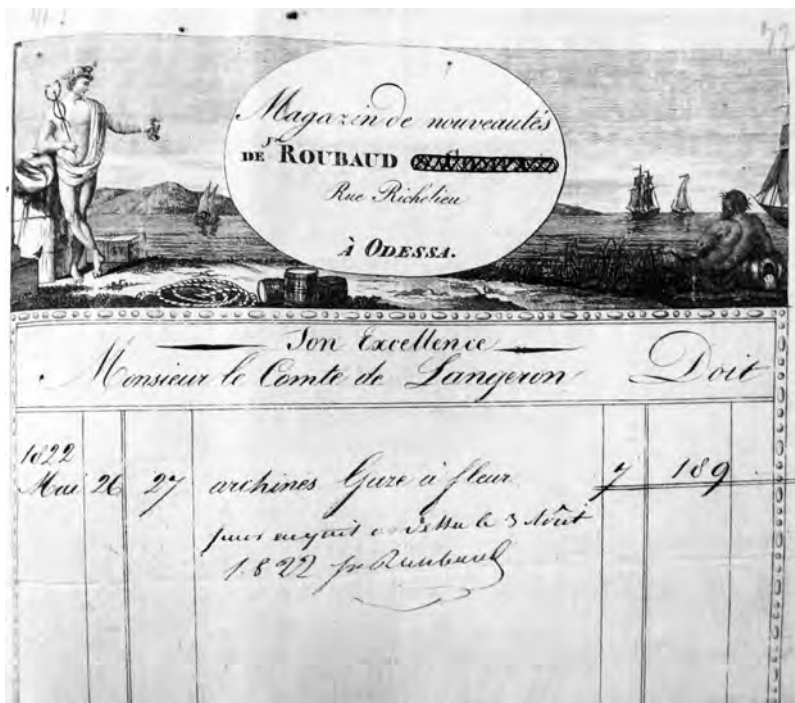 Magazin de nouveautés
DE Jn ROUBAUD
Rue Richelieu
à ODESSA.
Son Excellence
Monsieur le Comte de Langeron Doit
1822
Mai 26 27 archines Gaze à fleur 7 189
pour acquit Odessa le 3 Aôut
1822 Jn Roubaud